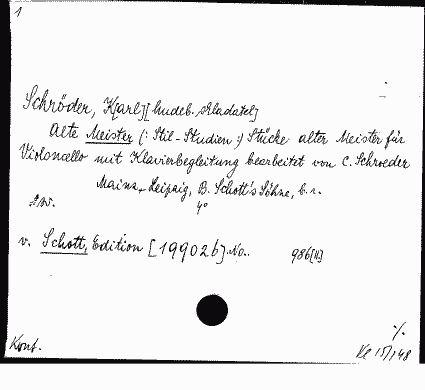 1
Schröder, K[arl] [hudeb. skladatel]
Alte Meister (: Stil-Studien :) Stücke alter Meister für
Violoncello mit Klavierbegleitung bearbeitet von C. Schroeder
Mainz, Leipzig, B. Schott's Söhne, b. r.
4°
v. Schott, Edition [19902b] No.. 986[II]
%
Kont.
Kl 15/148